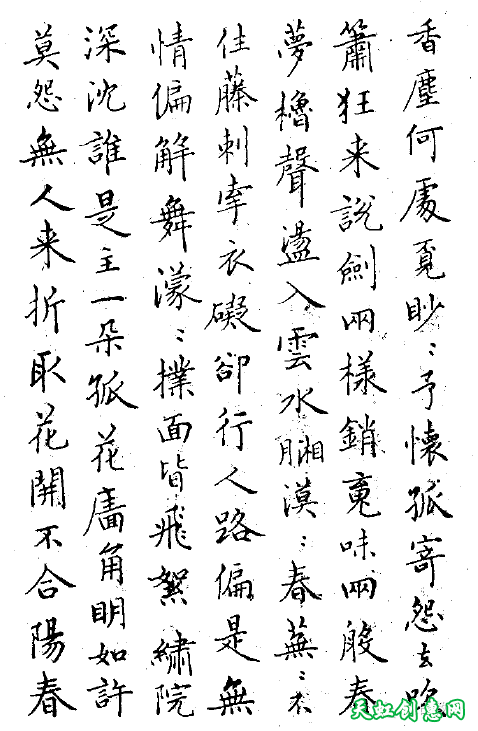 香塵何處覓眇〻予懷孤寄怨去吹
簫狂来說劍兩樣銷䰟味兩般春
夢櫓聲盪入雲水漠〻春蕪〻不
住藤刺牽衣礙卻行人路偏是無
情偏解舞濛〻撲面皆飛絮繡院
深沈誰是主一朵孤花廧角明如許
莫怨無人来折取花開不合陽春
天虹创意网